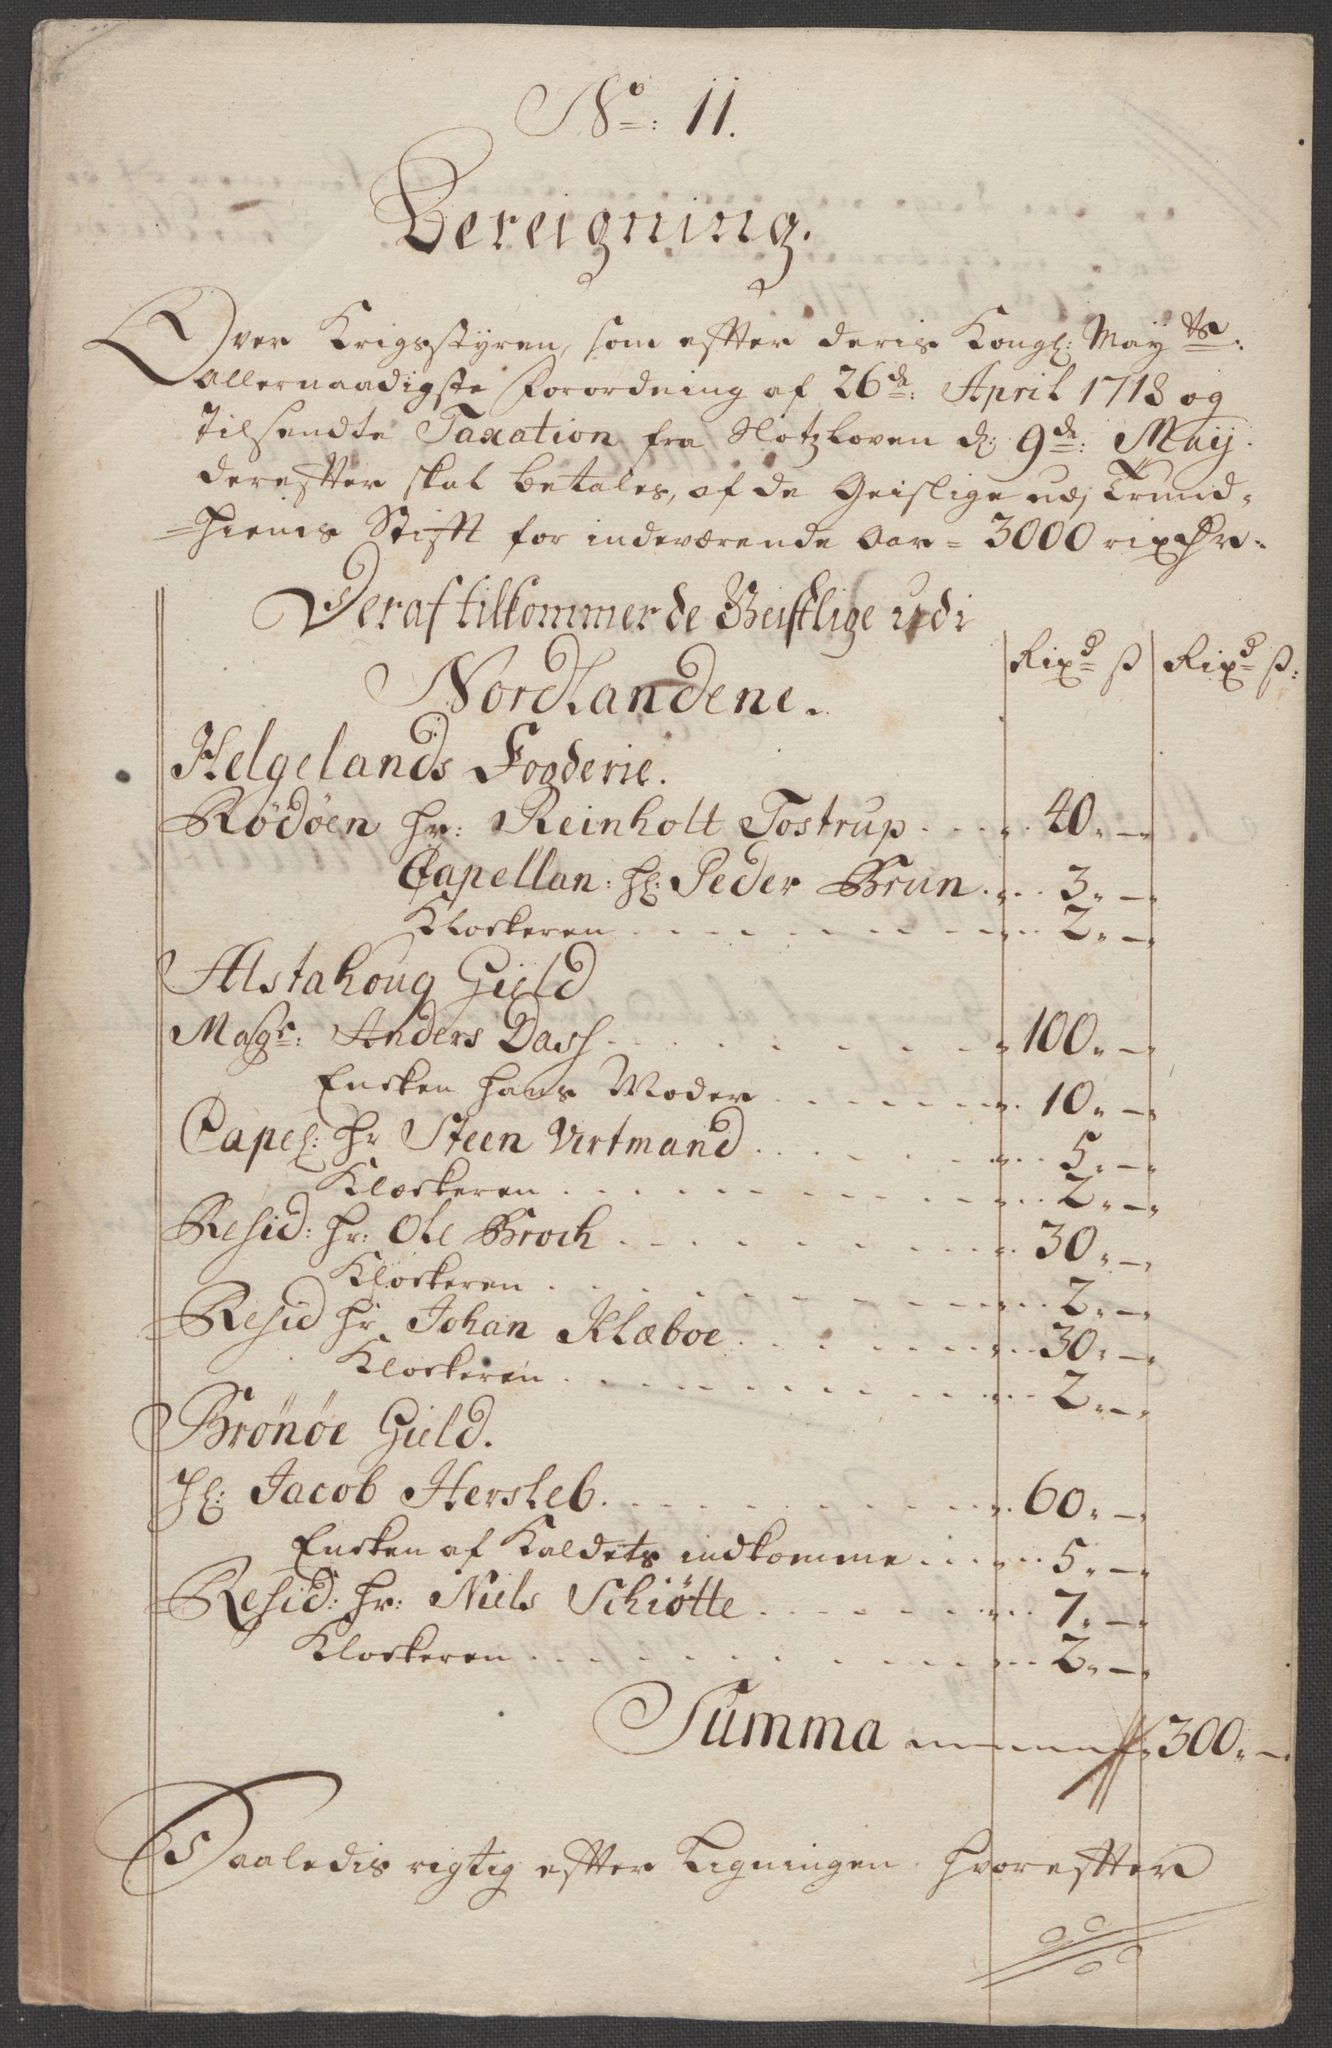 No: 11.
Bereigning.
Over Krigsstyren, som effter deris Kongl: Mayts:
Allernaadigste Forordning af 26de: April 1718 og
tilsendte Taxation fra Slotzloven d: 9de: Maij.
dereffter skal betales, af de Geistlige udj Trund-
=hiems Stifft for indeværende Aar = 3000 rixdr.
Deraf tilkommer de Geistlige udi
Rixd ß Rixd ß:
Nordlandene.
Helgelands Fogderie.
Rödöen hr: Reinholt Tostrup .... 40. —
Capellan: Hl: Peder Brun ... 3. —
Klockeren ........ 2. —
Alstahoug Gield
Magr: Anders Dass ........ 100. —
Encken hans Moder ....... 10. —
Capel: hr Steen Virtmand ...... 5. —
Klockeren ........ 2. —
Resid: hr: Ole Broch ........ 30. —
Klockeren ........ 2. —
Resid hr Johan Klæboe ....... 30. —
Klockeren ........ 2. —
Brönöe Gield.
Hl: Jacob Hersleb ........ 60. —
Encken af Kaldets indkomme ..... 5. —
Resid: hr: Niels Schiötte ....... 7. —
Klockeren ........ 2. —
Summa 300. —
Saaledis rigtig effter Ligningen. hvoreffter